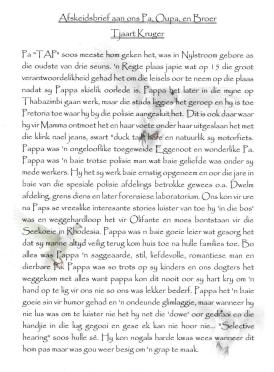 Afskeidsbrief aan ons Pa, Oupa, en Broer
Tjaart Kruger
Pa "TAP" soos meeste hom geken het, was in Nylstroom gebore as
die oudste van drie seuns. 'n Regte plaas japie wat op 15 die groot
verantwoordelikheid gehad het om die leisels oor te neem op die plaas
nadat sy Pappa skielik oorlede is. Pappa het later in die myne op
Thabazimbi gaan werk, maar die stads ligges het geroep en hy is toe
Pretoria toe waar hy by die polisie aangesluit het. Dit is ook daar waar
hy vir Mamma ontmoet het en haar voete onder haar uitgeslaan het met
die klink nael jeans, swart "duck tail" hare en natuurlik sy motorfiets.
Pappa was 'n ongelooflike toegeweide Eggenoot en wonderlike Pa.
Pappa was 'n baie trotse polisie man wat baie geliefde was onder sy
mede werkers. Hy het sy werk baie ernstig opgeneem en oor die jare in
baie van die spesiale polisie afdelings betrokke gewees o.a. Dwelm
afdeling, grens diens en later forensiese laboratorium. Ons kon vir ure
na Papa se vreeslike interesante stories luister van toe hy 'in die bos'
was en weggehardloop het vir Olifante en moes bontstaan vir die
Seekoeie in Rhodesia. Pappa was 'n baie goeie leier wat gesorg het
dat sy manne altyd veilig terug kom huis toe na hulle families toe. Bo
alles was Pappa 'n saggeaarde, stil, liefdevolle, romantiese man en
dierbare Pa. Pappa was so trots op sy kinders en ons dogters het
weggekom met alles want pappa kon dit nooit oor sy hart kry om 'n
hand op te lig vir ons nie so ons was lekker bederf. Pappa het 'n baie
goeie sin vir humor gehad en 'n ondeunde glimlaggie, maar wanneer hy
nie lus was om te luister nie het hy net die 'dowe' oor gedraai en die
handjie in die lug gegooi en gese ek kan nie hoor nie... "Selective
hearing" soos hulle sê. Hy kon nogals harde kwas wees wanneer dit
hom pas maar was gou weer besig om 'n grap te maak.